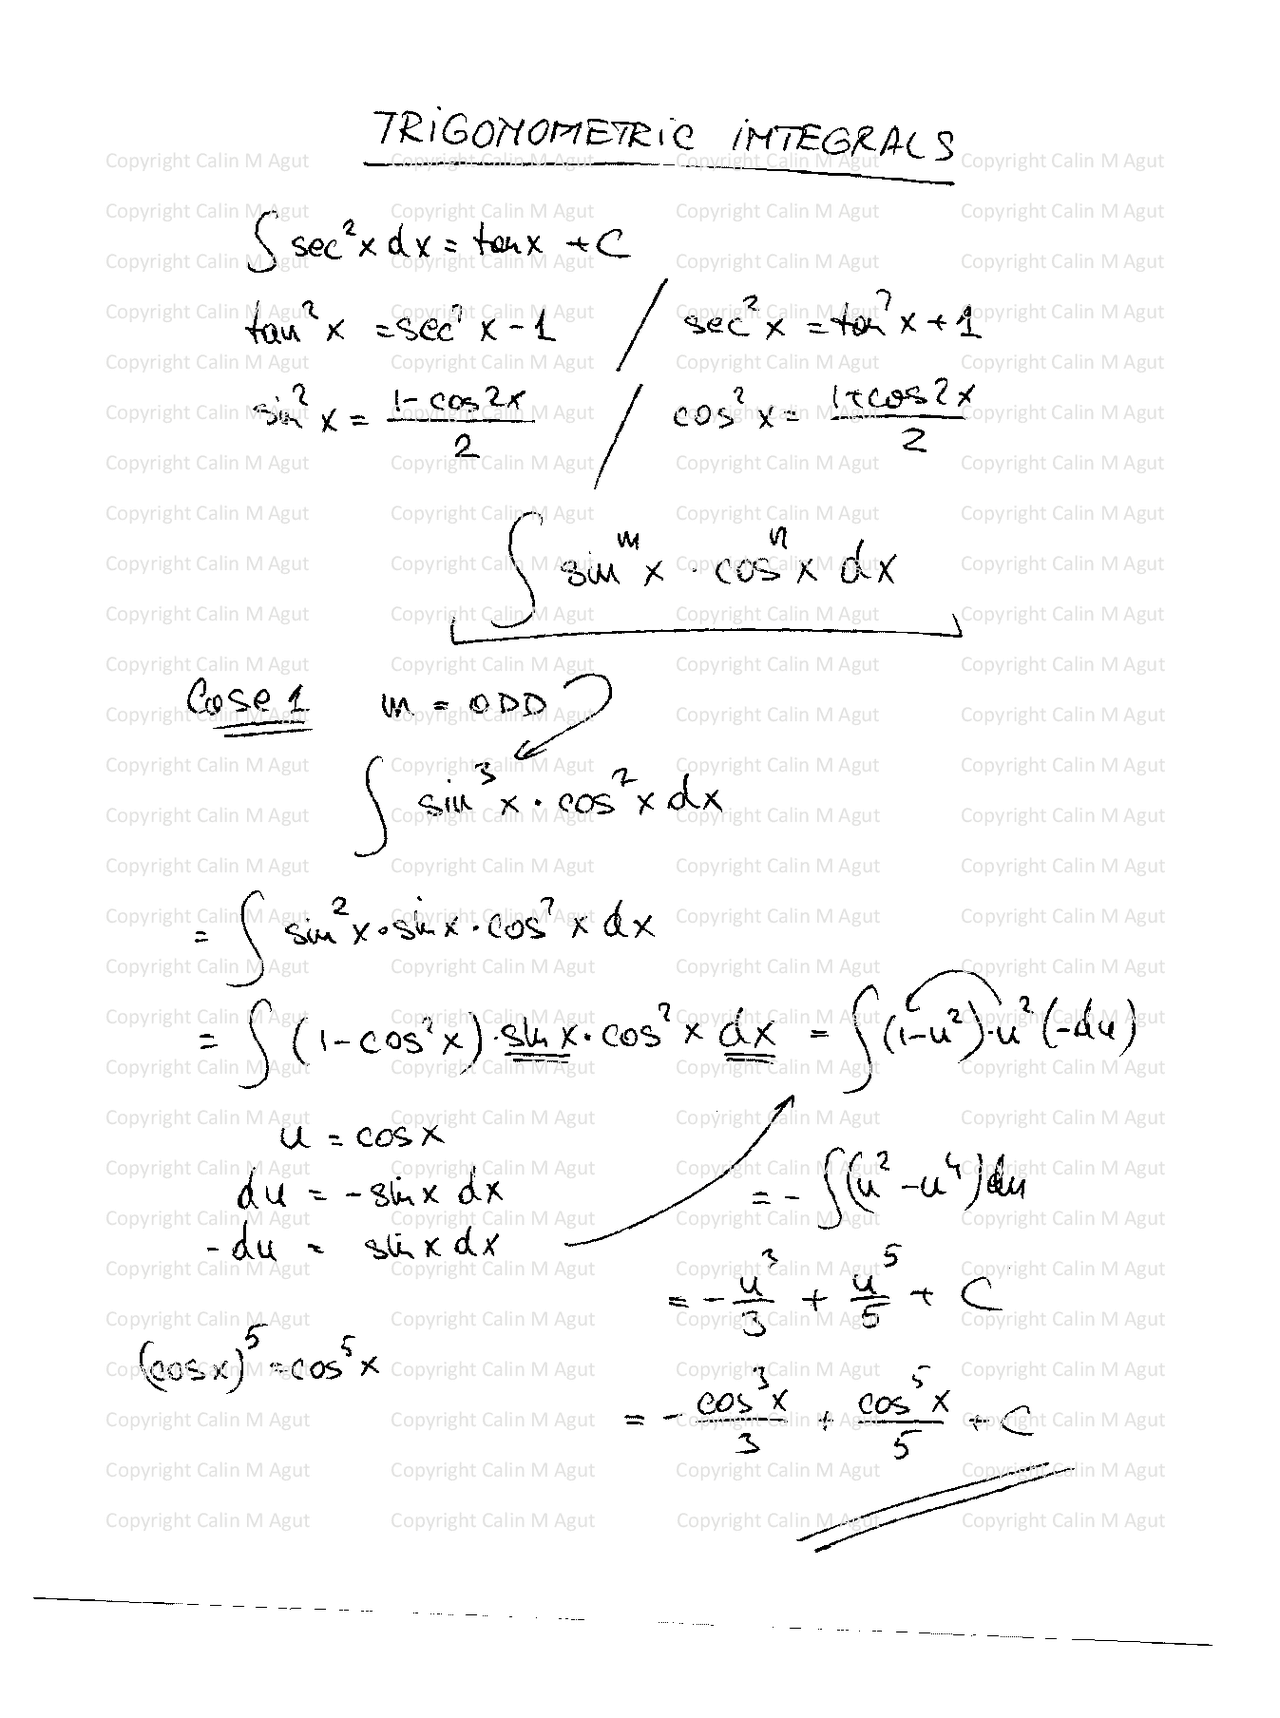 TRIGONOMETRIC INTEGRALS
∫ sec²x dx = tanx + C
tan²x = sec²x - 1 / sec²x = tan²x + 1
sin²x = (1 - cos2x)/2 / cos²x = (1 + cos2x)/2
∫ sinᵐx · cosⁿx dx
Case 1 m = ODD
∫ sin³x · cos²x dx
= ∫ sin²x · sinx · cos²x dx
= ∫ (1 - cos²x) · sinx · cos²x dx = ∫ (1 - u²) · u² (-du)
u = cosx
du = -sinx dx
= - ∫ (u² - u⁴) du
-du = sinx dx
= - u³/3 + u⁵/5 + C
(cosx)⁵ = cos⁵x
= - cos³x/3 + cos⁵x/5 + C
Copyright Calin M Agut